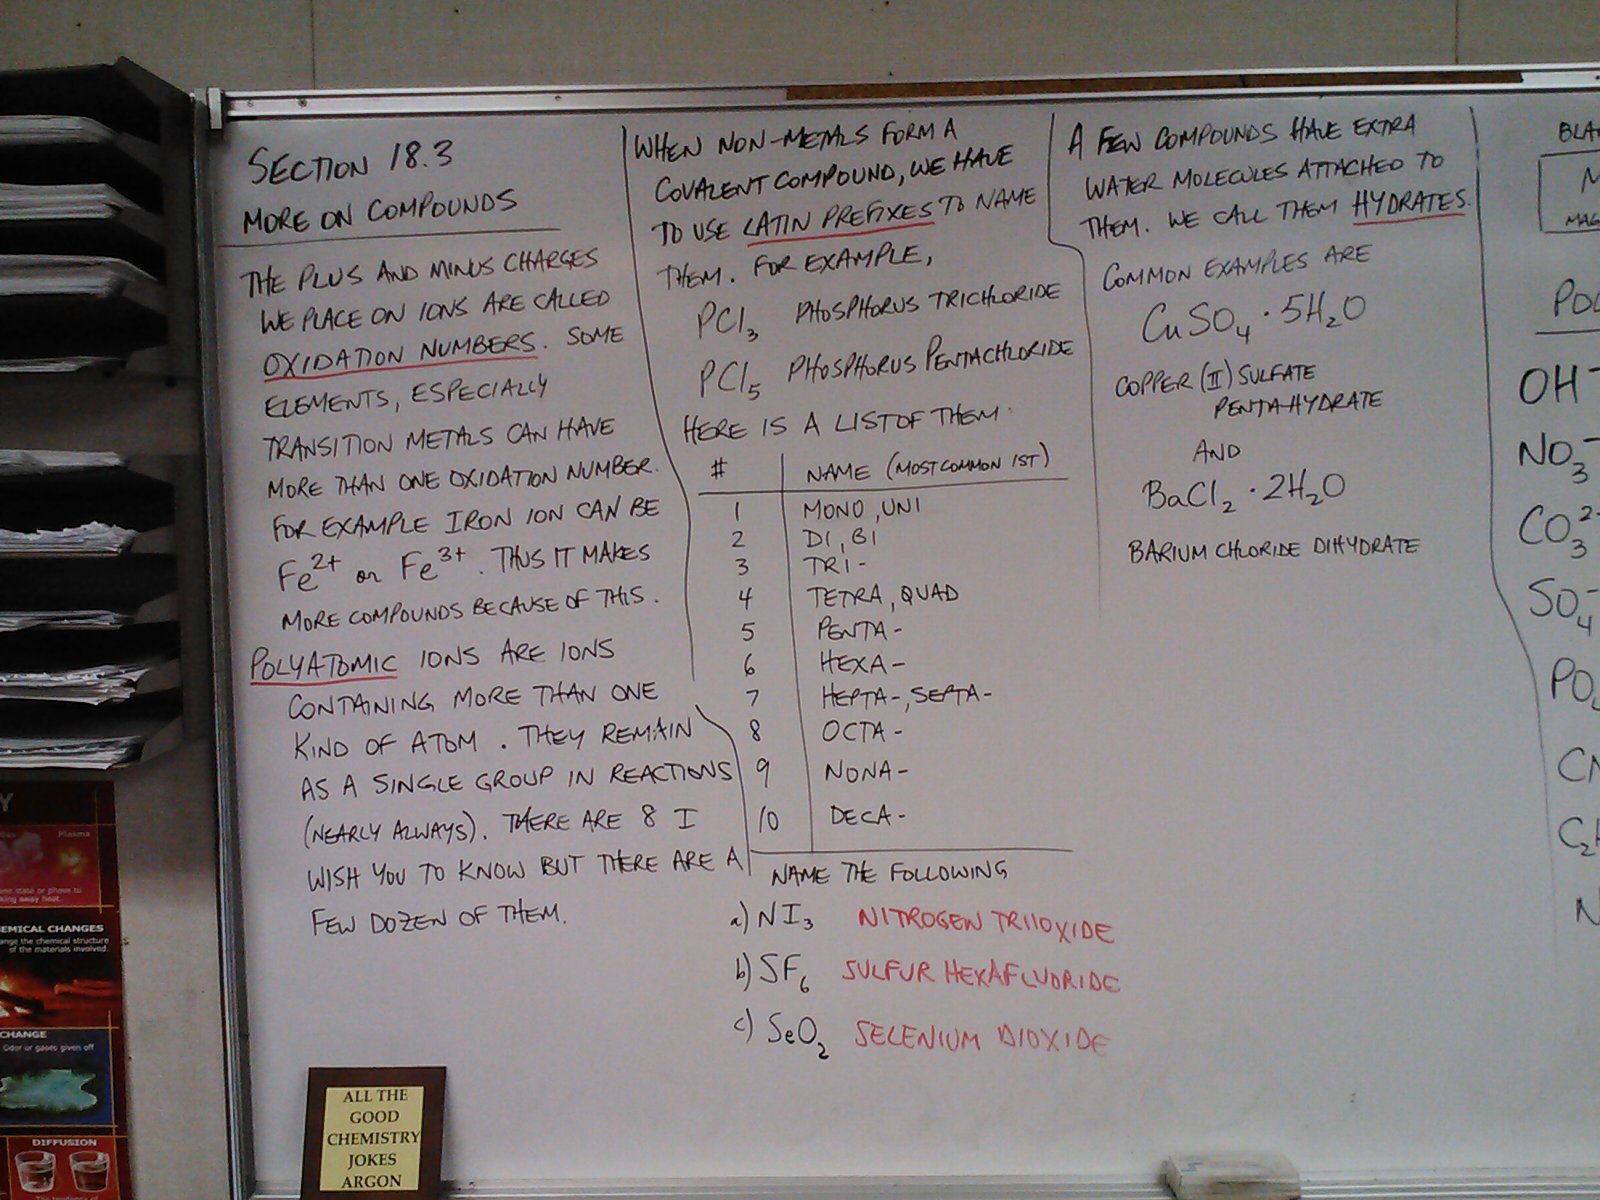 SECTION 18.3
MORE ON COMPOUNDS
THE PLUS AND MINUS CHARGES
WE PLACE ON IONS ARE CALLED
OXIDATION NUMBERS. SOME
ELEMENTS, ESPECIALLY
TRANSITION METALS CAN HAVE
MORE THAN ONE OXIDATION NUMBER.
FOR EXAMPLE IRON ION CAN BE
Fe²⁺ or Fe³⁺. THUS IT MAKES
MORE COMPOUNDS BECAUSE OF THIS.
POLYATOMIC IONS ARE IONS
CONTAINING MORE THAN ONE
KIND OF ATOM. THEY REMAIN
AS A SINGLE GROUP IN REACTIONS
(NEARLY ALWAYS). THERE ARE 8 I
WISH YOU TO KNOW BUT THERE ARE A
FEW DOZEN OF THEM.
WHEN NON-METALS FORM A
COVALENT COMPOUND, WE HAVE
TO USE LATIN PREFIXES TO NAME
THEM. FOR EXAMPLE,
PCl₃ PHOSPHORUS TRICHLORIDE
PCl₅ PHOSPHORUS PENTACHLORIDE
HERE IS A LIST OF THEM:
# NAME (MOST COMMON 1ST)
1 MONO, UNI
2 DI, BI
3 TRI-
4 TETRA, QUAD
5 PENTA-
6 HEXA-
7 HEPTA-, SEPTA-
8 OCTA-
9 NONA-
10 DECA-
NAME THE FOLLOWING
a) NI₃ NITROGEN TRIIOXIDE
b) SF₆ SULFUR HEXAFLUORIDE
c) SeO₂ SELENIUM DIOXIDE
A FEW COMPOUNDS HAVE EXTRA
WATER MOLECULES ATTACHED TO
THEM. WE CALL THEM HYDRATES.
COMMON EXAMPLES ARE
CuSO₄·5H₂O
COPPER (II) SULFATE
PENTA-HYDRATE
AND
BaCl₂·2H₂O
BARIUM CHLORIDE DIHYDRATE
BLA
M
MAG
POL
OH⁻
NO₃⁻
CO₃²⁻
SO₄⁻
PO₄
CN
C₂
N
ALL THE
GOOD
CHEMISTRY
JOKES
ARGON
Y
Plasma
EMICAL CHANGES
ange the chemical structure
of the materials involved.
CHANGE
Odor or gases given off
DIFFUSION